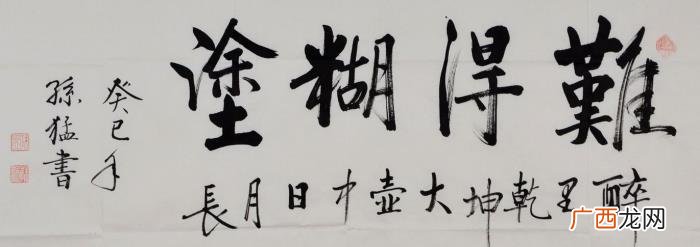 難得糊塗
醉里乾坤大壺中日月長
癸巳年
孫猛書
广西龙网